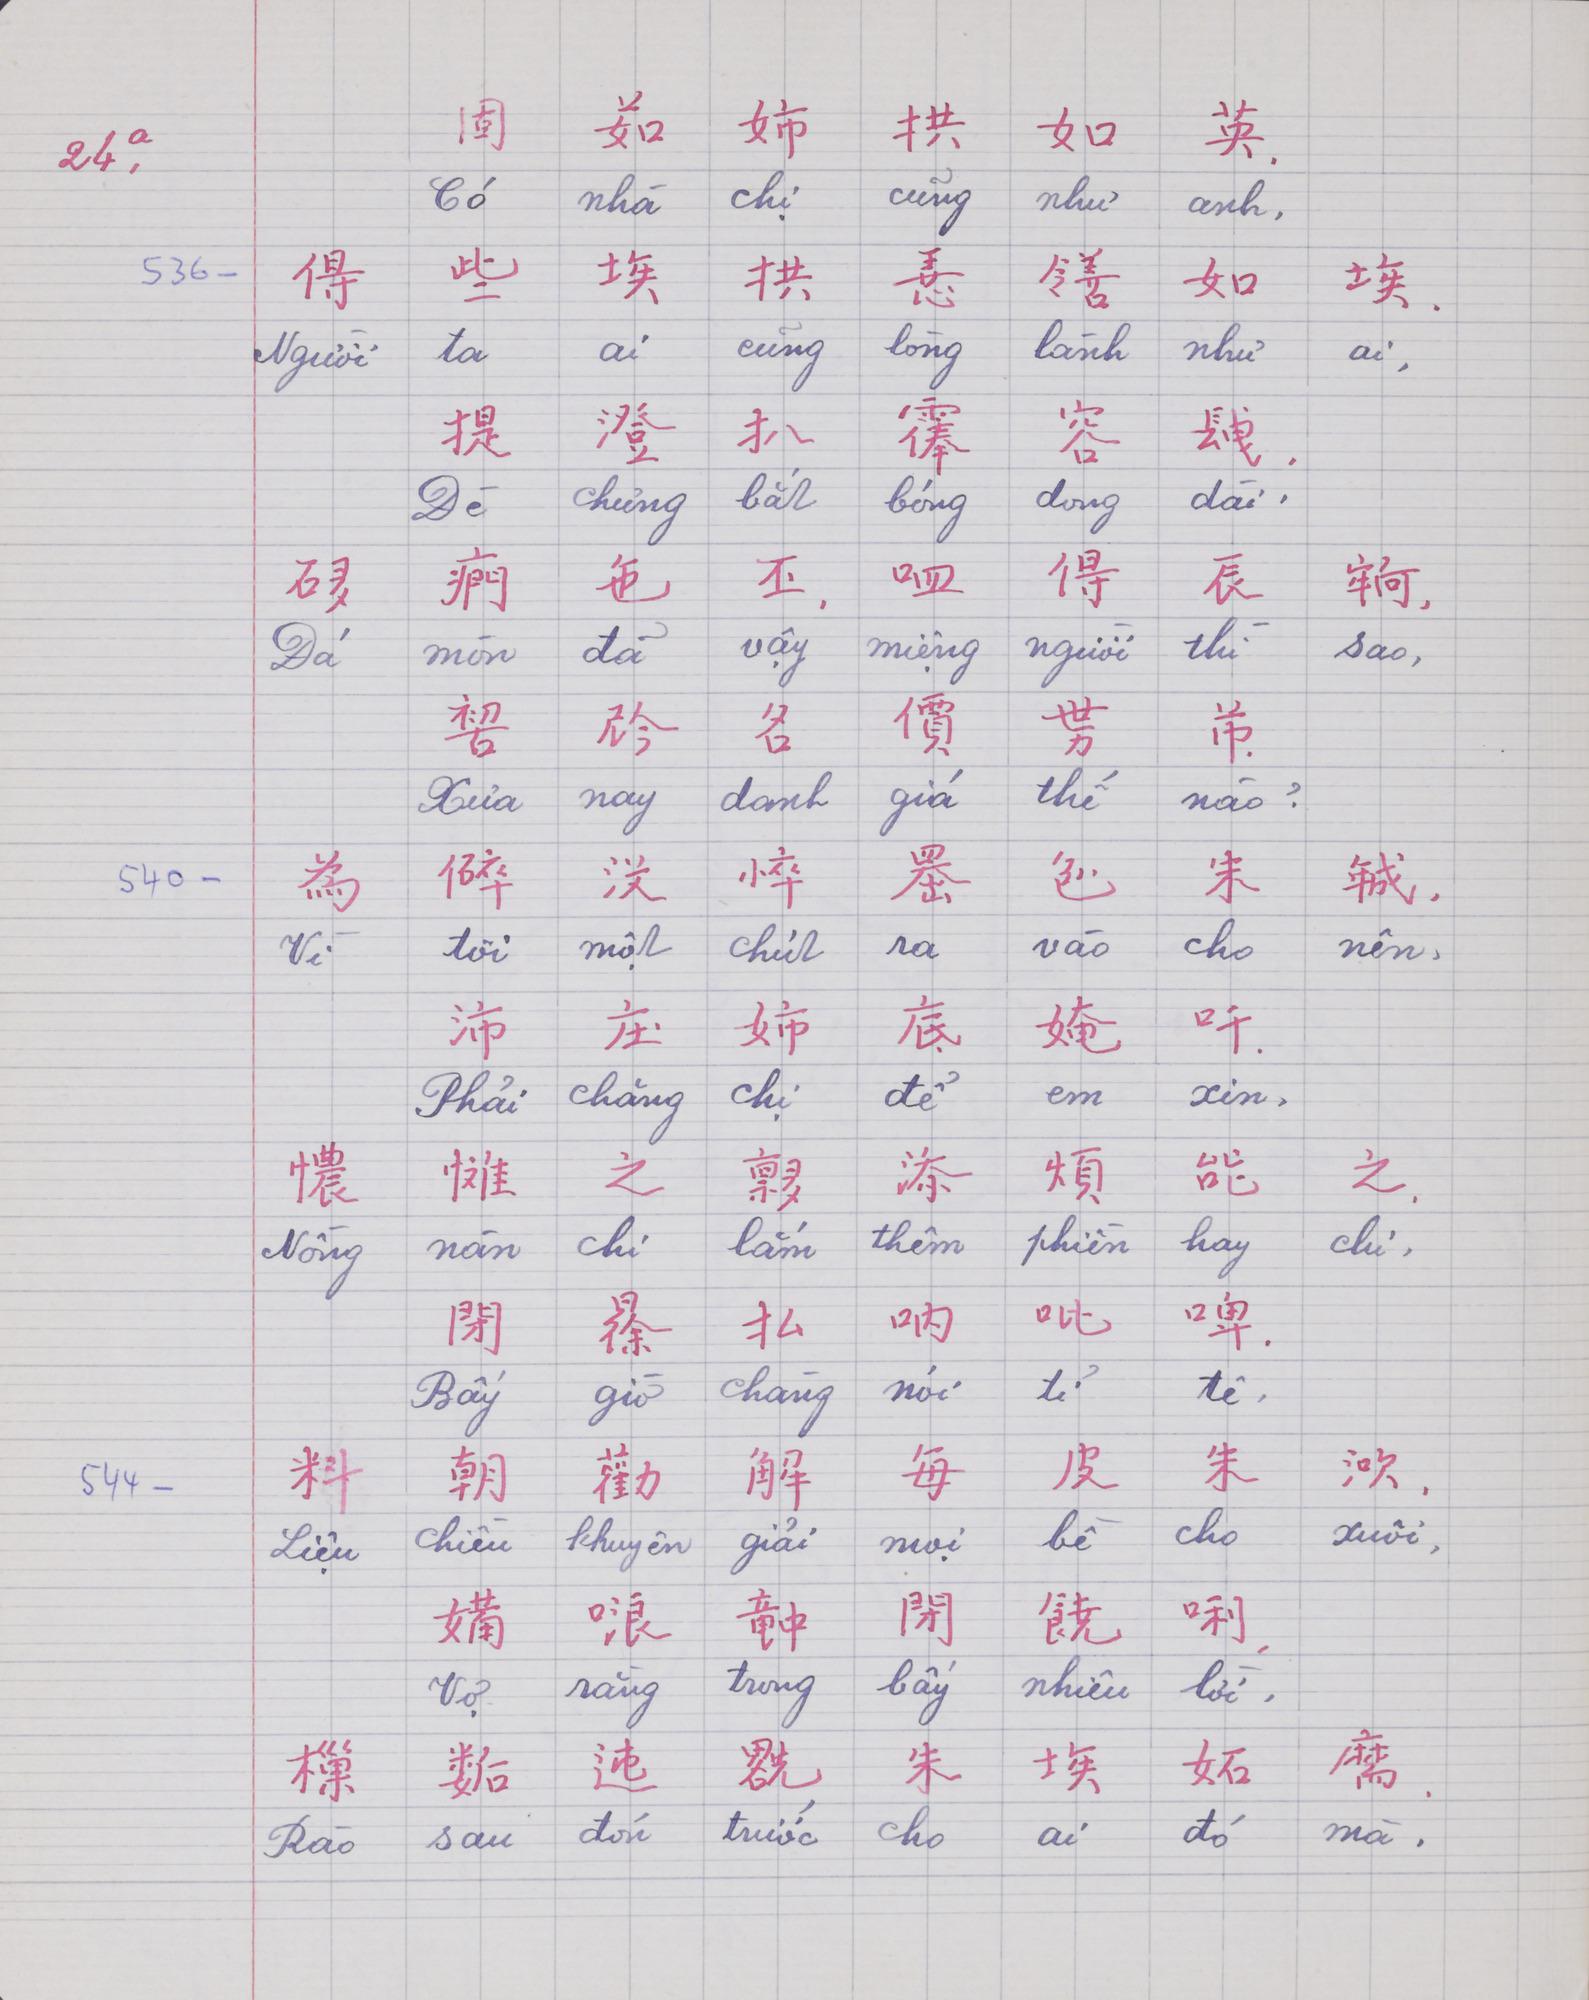 24a.
固 茹 姉 拱 如 英.
Có nhà chị cũng như anh,
536- 得 些 埃 拱 如 埃.
Người ta ai cũng lòng lành như ai,
提 澄 扒 容.
Dè chừng bắt bóng dong dài,
丕, 𠰘 得 辰.
Đá mòn đã vậy miệng người thì sao,
名 價
Xưa nay danh giá thế nào?
540- 為 碎 没 悴 朱.
Vì tôi một chút ra vào cho nên,
沛 庄 姉 底 㛪 吀.
Phải chăng chị để em xin,
憹 之 添 煩 能 之.
Nồng nàn chi lắm thêm phiền hay chi,
閉 払 吶 吡 啤.
Bấy giờ chàng nói tỉ tê,
544- 料 朝 勸 解 每 皮 朱.
Liệu chiều khuyên giải mọi bề cho xuôi,
閉 饒 唎.
Vợ rằng trong bấy nhiêu lời,
樔 朱 埃 妬 麿.
Rào sau đón trước cho ai đó mà.